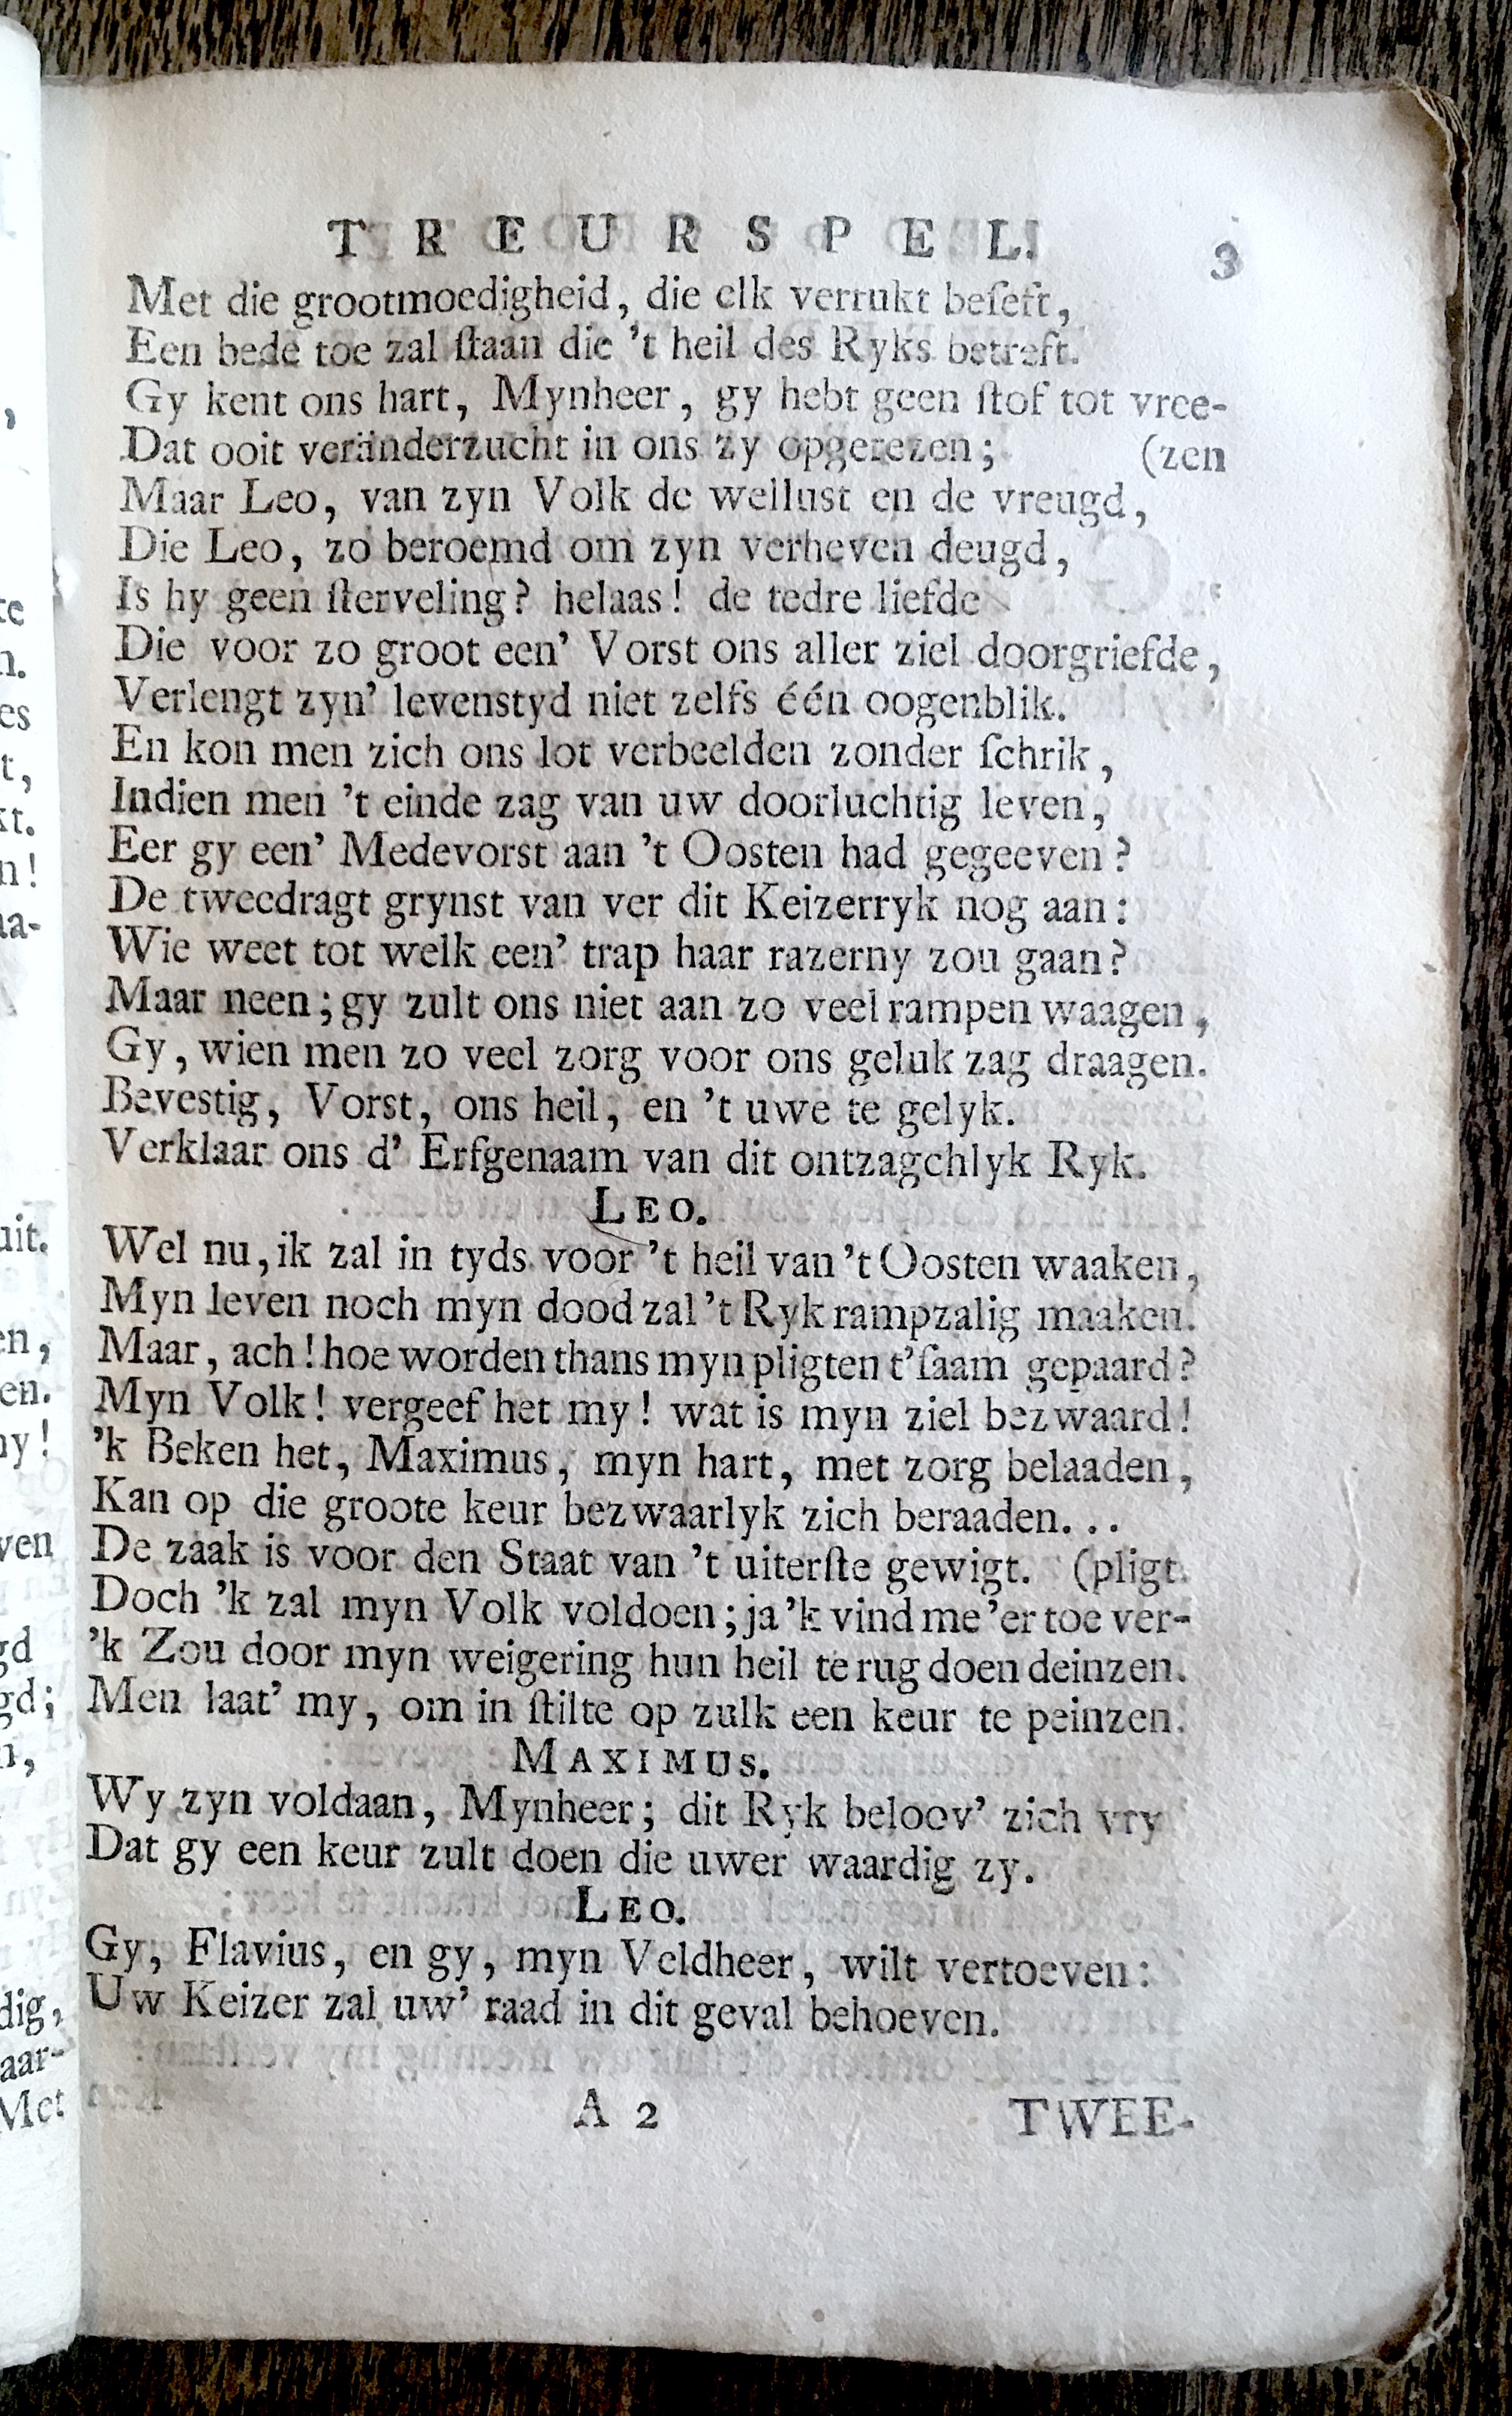 TREURSPEL. 3
Met die grootmoedigheid, die elk verrukt beſeft,
Een bede toe zal ſtaan die 't heil des Ryks betreft.
Gy kent ons hart, Mynheer, gy hebt geen ſtof tot vree-
Dat ooit veränderzucht in ons zy opgerezen; (zen
Maar Leo, van zyn Volk de wellust en de vreugd,
Die Leo, zo beroemd om zyn verheven deugd,
Is hy geen ſterveling? helaas! de tedre liefde
Die voor zo groot een' Vorst ons aller ziel doorgriefde,
Verlengt zyn' levenstyd niet zelfs één oogenblik.
En kon men zich ons lot verbeelden zonder ſchrik,
Indien men 't einde zag van uw doorluchtig leven,
Eer gy een' Medevorst aan 't Oosten had gegeeven?
De tweedragt grynst van ver dit Keizerryk nog aan:
Wie weet tot welk een' trap haar razerny zou gaan?
Maar neen; gy zult ons niet aan zo veel rampen waagen,
Gy, wien men zo veel zorg voor ons geluk zag draagen.
Bevestig, Vorst, ons heil, en 't uwe te gelyk.
Verklaar ons d' Erfgenaam van dit ontzagchlyk Ryk.
LEO.
Wel nu, ik zal in tyds voor 't heil van 't Oosten waaken,
Myn leven noch myn dood zal 't Ryk rampzalig maaken.
Maar, ach! hoe worden thans myn pligten t'ſaam gepaard?
Myn Volk! vergeef het my! wat is myn ziel bezwaard!
'k Beken het, Maximus, myn hart, met zorg belaaden,
Kan op die groote keur bezwaarlyk zich beraaden...
De zaak is voor den Staat van 't uiterſte gewigt. (pligt.
Doch 'k zal myn Volk voldoen; ja 'k vind me 'er toe ver-
'k Zou door myn weigering hun heil te rug doen deinzen.
Men laat' my, om in ſtilte op zulk een keur te peinzen.
MAXIMUS.
Wy zyn voldaan, Mynheer; dit Ryk beloov' zich vry
Dat gy een keur zult doen die uwer waardig zy.
LEO.
Gy, Flavius, en gy, myn Veldheer, wilt vertoeven:
Uw Keizer zal uw' raad in dit geval behoeven.
A 2 TWEE-